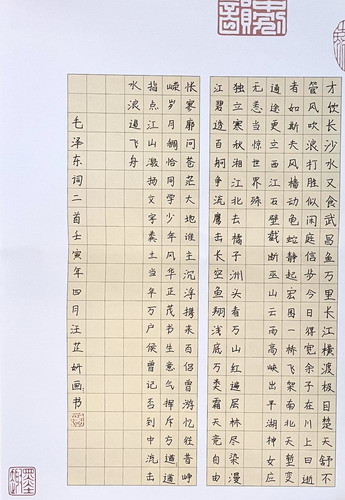 才饮长沙水又食武昌鱼万里长江横渡极目楚天舒不
管风吹浪打胜似闲庭信步今日得宽余子在川上曰逝
者如斯夫风樯动龟蛇静起宏图一桥飞架南北天堑变
通途更立西江石壁截断巫山云雨高峡出平湖神女应
无恙当惊世界殊
独立寒秋湘江北去橘子洲头看万山红遍层林尽染漫
江碧透百舸争流鹰击长空鱼翔浅底万类霜天竞自由
怅寥廓问苍茫大地谁主沉浮携来百侣曾游忆往昔峥
嵘岁月稠恰同学少年风华正茂书生意气挥斥方遒
指点江山激扬文字粪土当年万户侯曾记否到中流击
水浪遏飞舟
毛泽东词二首壬寅年四月汪芷妍画书